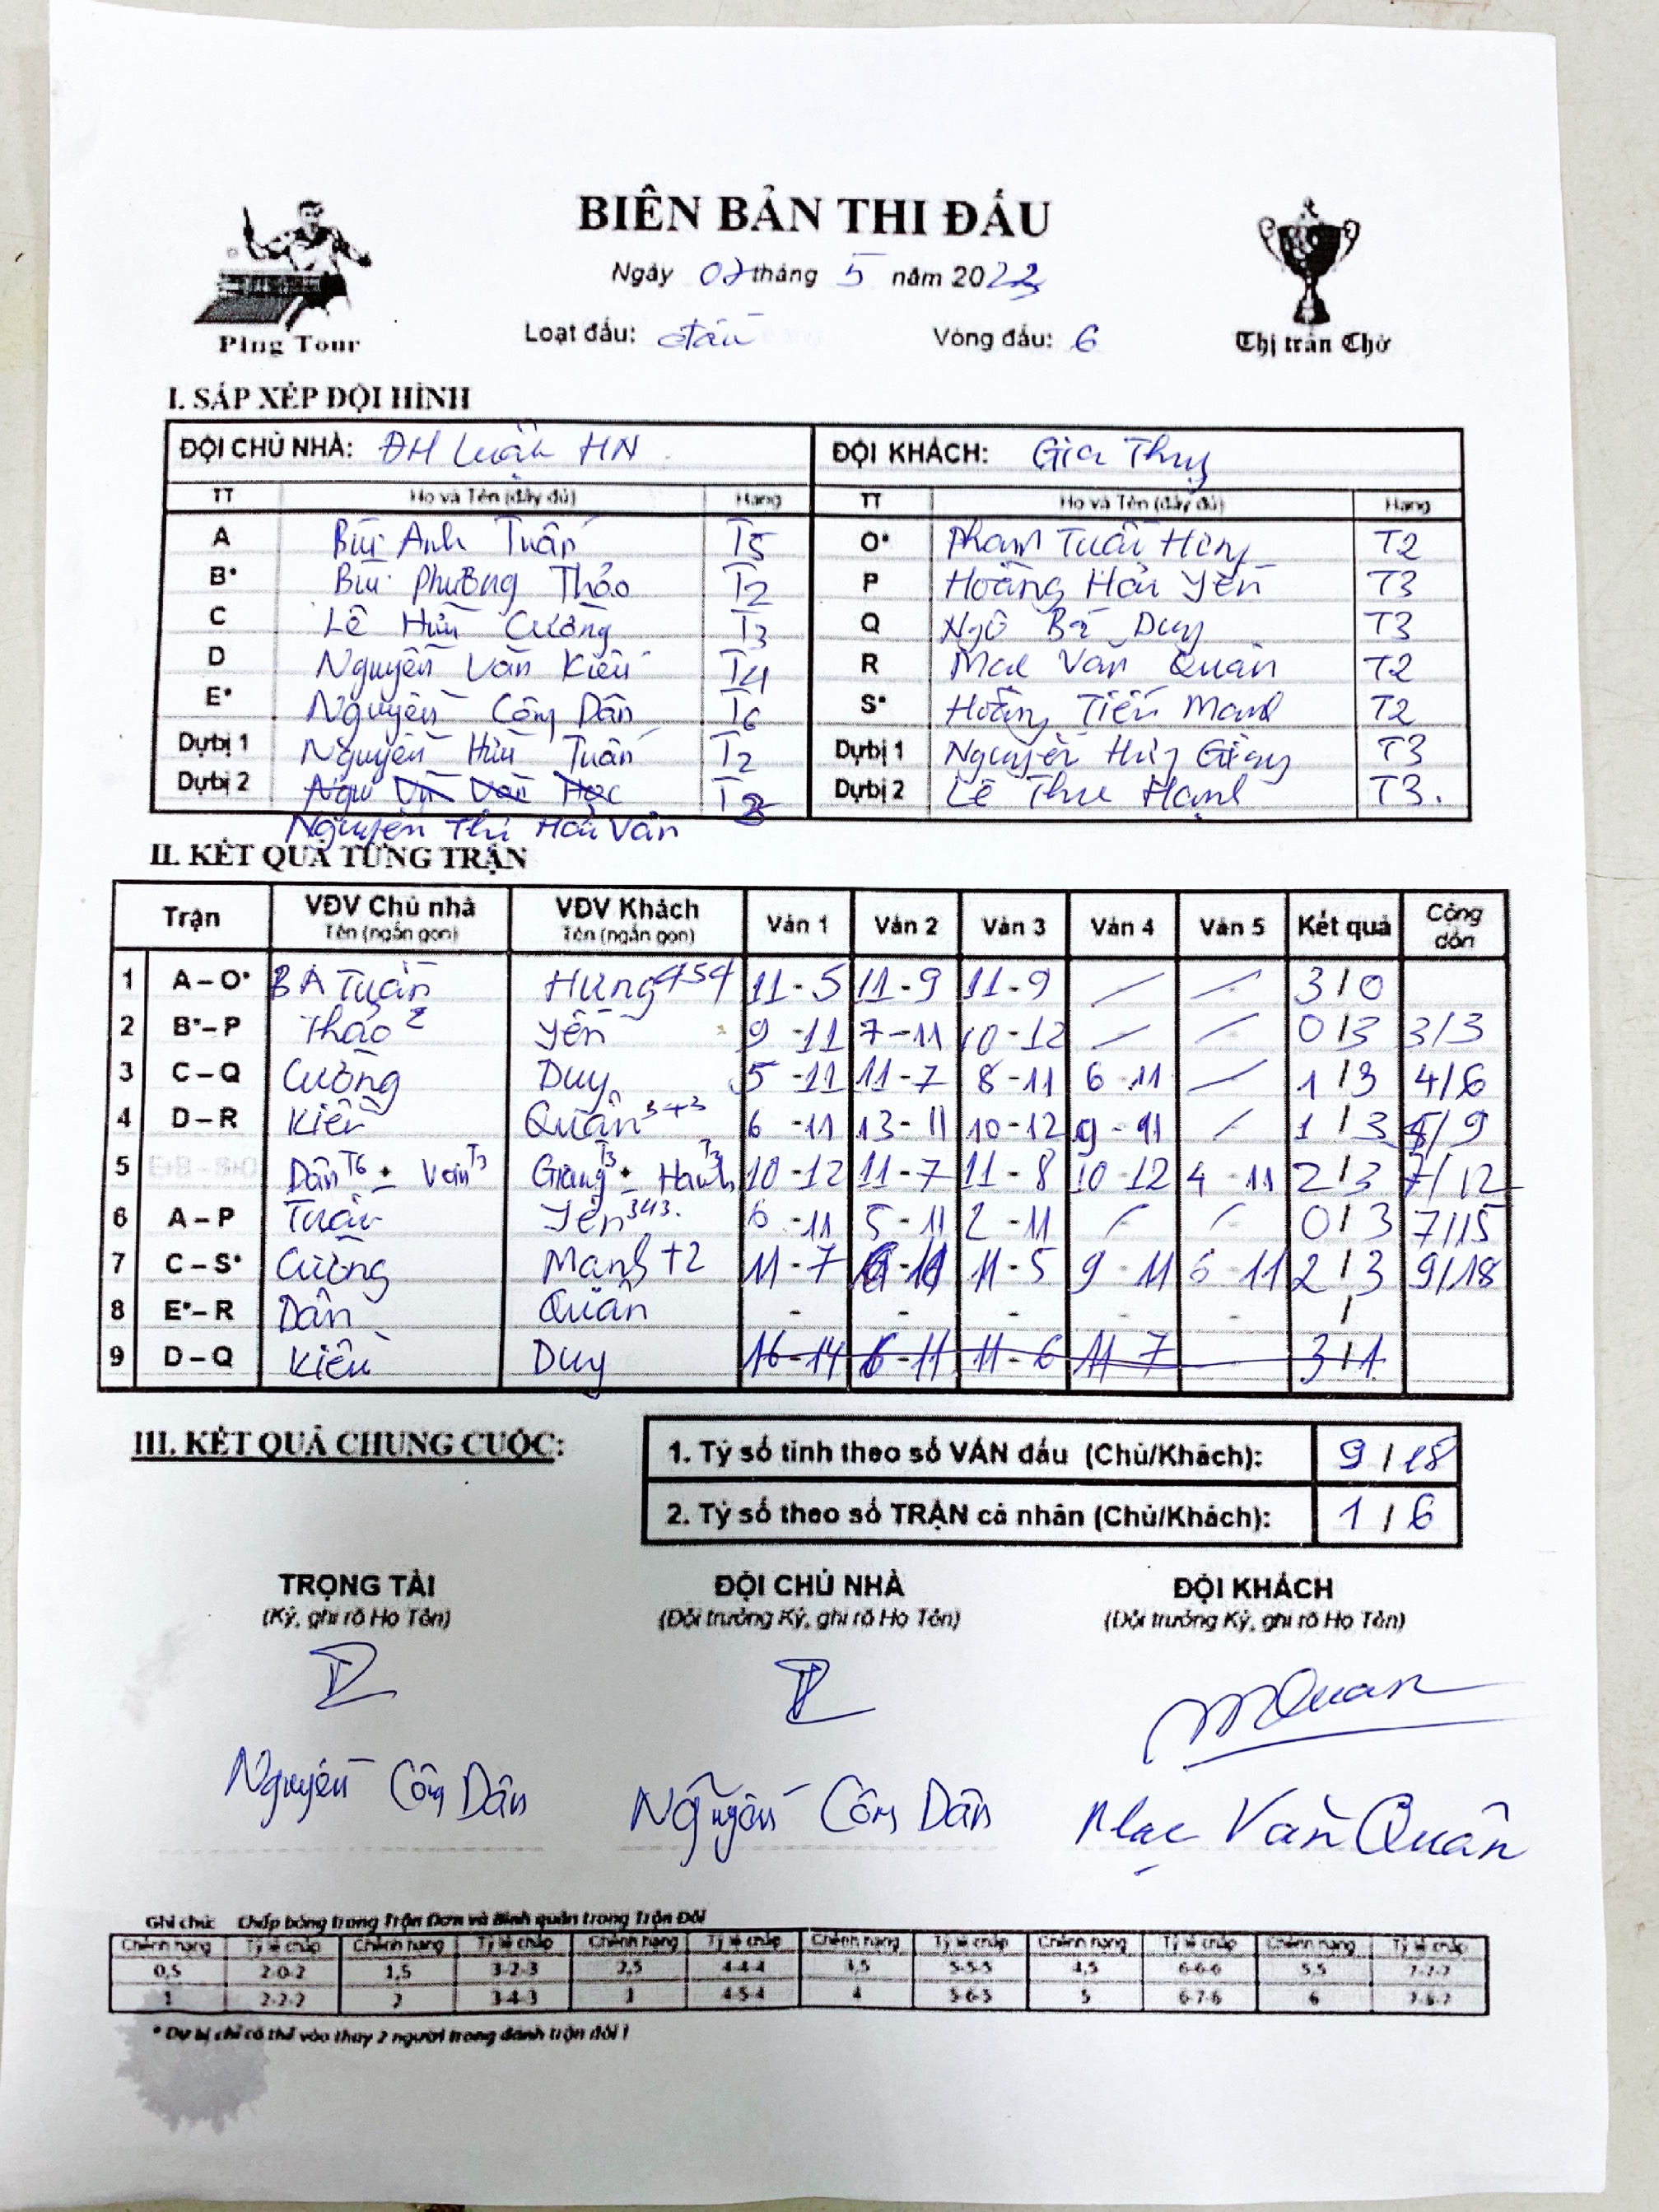 BIÊN BẢN THI ĐẤU
Ngày 07 tháng 5 năm 2023
Ping Tour
Loạt đấu: Vòng đấu: 6
Thị trấn Chờ
I. SẮP XẾP ĐỘI HÌNH
ĐỘI CHỦ NHÀ: ĐH Luật HN ĐỘI KHÁCH: Gia Thụy
TT Họ và Tên (đầy đủ) Hạng TT Họ và Tên (đầy đủ) Hạng
A Bùi Anh Tuấn T5 O* Phạm Tuấn Hùng T2
B* Bùi Phương Thảo T2 P Hoàng Hải Yến T3
C Lê Hữu Cường T3 Q Ngô Bá Duy T3
D Nguyễn Văn Kiên T4 R Mạc Văn Quân T2
E* Nguyễn Công Dân T6 S* Hoàng Tiến Mạnh T2
Dự bị 1 Nguyễn Hữu Tuấn T2 Dự bị 1 Nguyễn Giang T3
Dự bị 2 T3 Dự bị 2 Lê Thu Hạnh T3.
Nguyễn Thị Hải Vân
II. KẾT QUẢ TỪNG TRẬN
Trận VĐV Chủ nhà VĐV Khách Ván 1 Ván 2 Ván 3 Ván 4 Ván 5 Kết quả Cộng dồn
Tên (ngắn gọn) Tên (ngắn gọn)
1 A – O* B A Tuấn Hùng 454 11 - 5 11 - 9 11 - 9 / / 3 / 0
2 B* – P Thảo 2 Yến 9 - 11 7 - 11 10 - 12 / / 0 / 3 3/3
3 C – Q Cường Duy 5 - 11 11 - 7 8 - 11 6 - 11 / 1 / 3 4/6
4 D – R Kiên Quân 343 6 - 11 13 - 11 10 - 12 9 - 11 / 1 / 3 5/9
5 Dân T6 + Vân T3 Giang T3 + Hạnh T3 10 - 12 11 - 7 11 - 8 10 - 12 4 - 11 2 / 3 7/12
6 A – P Tuấn Yến 343. 6 - 11 5 - 11 2 - 11 / / 0 / 3 7/15
7 C – S* Cường Mạnh +2 11 - 7 11 - 5 9 - 11 6 - 11 2 / 3 9/18
8 E* – R Dân Quân - - - - - /
9 D – Q Kiên Duy 16 - 14 6 - 11 11 - 6 11 - 7 - 3 / 1
III. KẾT QUẢ CHUNG CUỘC:
1. Tỷ số tính theo số VÁN đấu (Chủ/Khách): 9 / 18
2. Tỷ số theo số TRẬN cá nhân (Chủ/Khách): 1 / 6
TRỌNG TÀI ĐỘI CHỦ NHÀ ĐỘI KHÁCH
(Ký, ghi rõ Họ Tên) (Đội trưởng Ký, ghi rõ Họ Tên) (Đội trưởng Ký, ghi rõ Họ Tên)
MQuan
Nguyễn Công Dân Nguyễn Công Dân Mạc Văn Quân
Ghi chú: Chấp bóng trong Trận Đơn và Bình quân trong Trận Đôi
Chênh hạng Tỷ lệ chấp Chênh hạng Tỷ lệ chấp Chênh hạng Tỷ lệ chấp Chênh hạng Tỷ lệ chấp Chênh hạng Tỷ lệ chấp Chênh hạng Tỷ lệ chấp
0,5 2-0-2 1,5 3-2-3 2,5 4-4-4 3,5 5-5-5 4,5 6-6-6 5,5 7-7-7
1 2-2-2 2 3-4-3 3 4-5-4 4 5-6-5 5 6-7-6 6 7-8-7
* Dự bị chỉ có thể vào thay 2 người trong đánh trận đôi !